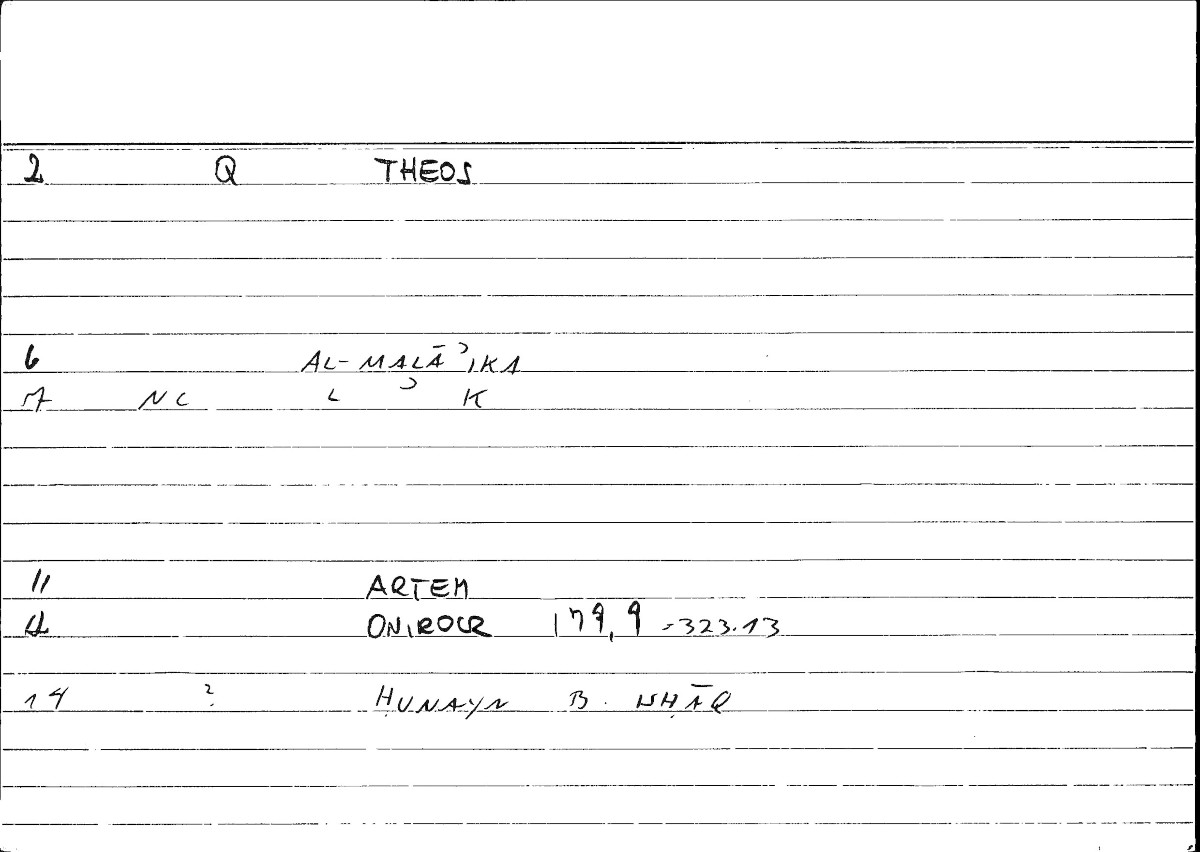 2 Q THEOS
6 AL-MALĀʾIKA
7 NC L ʾ K
11 ARTEM
12 ONIROCR 179,9 = 323.13
14 ? ḤUNAYN B. ISḤĀQ